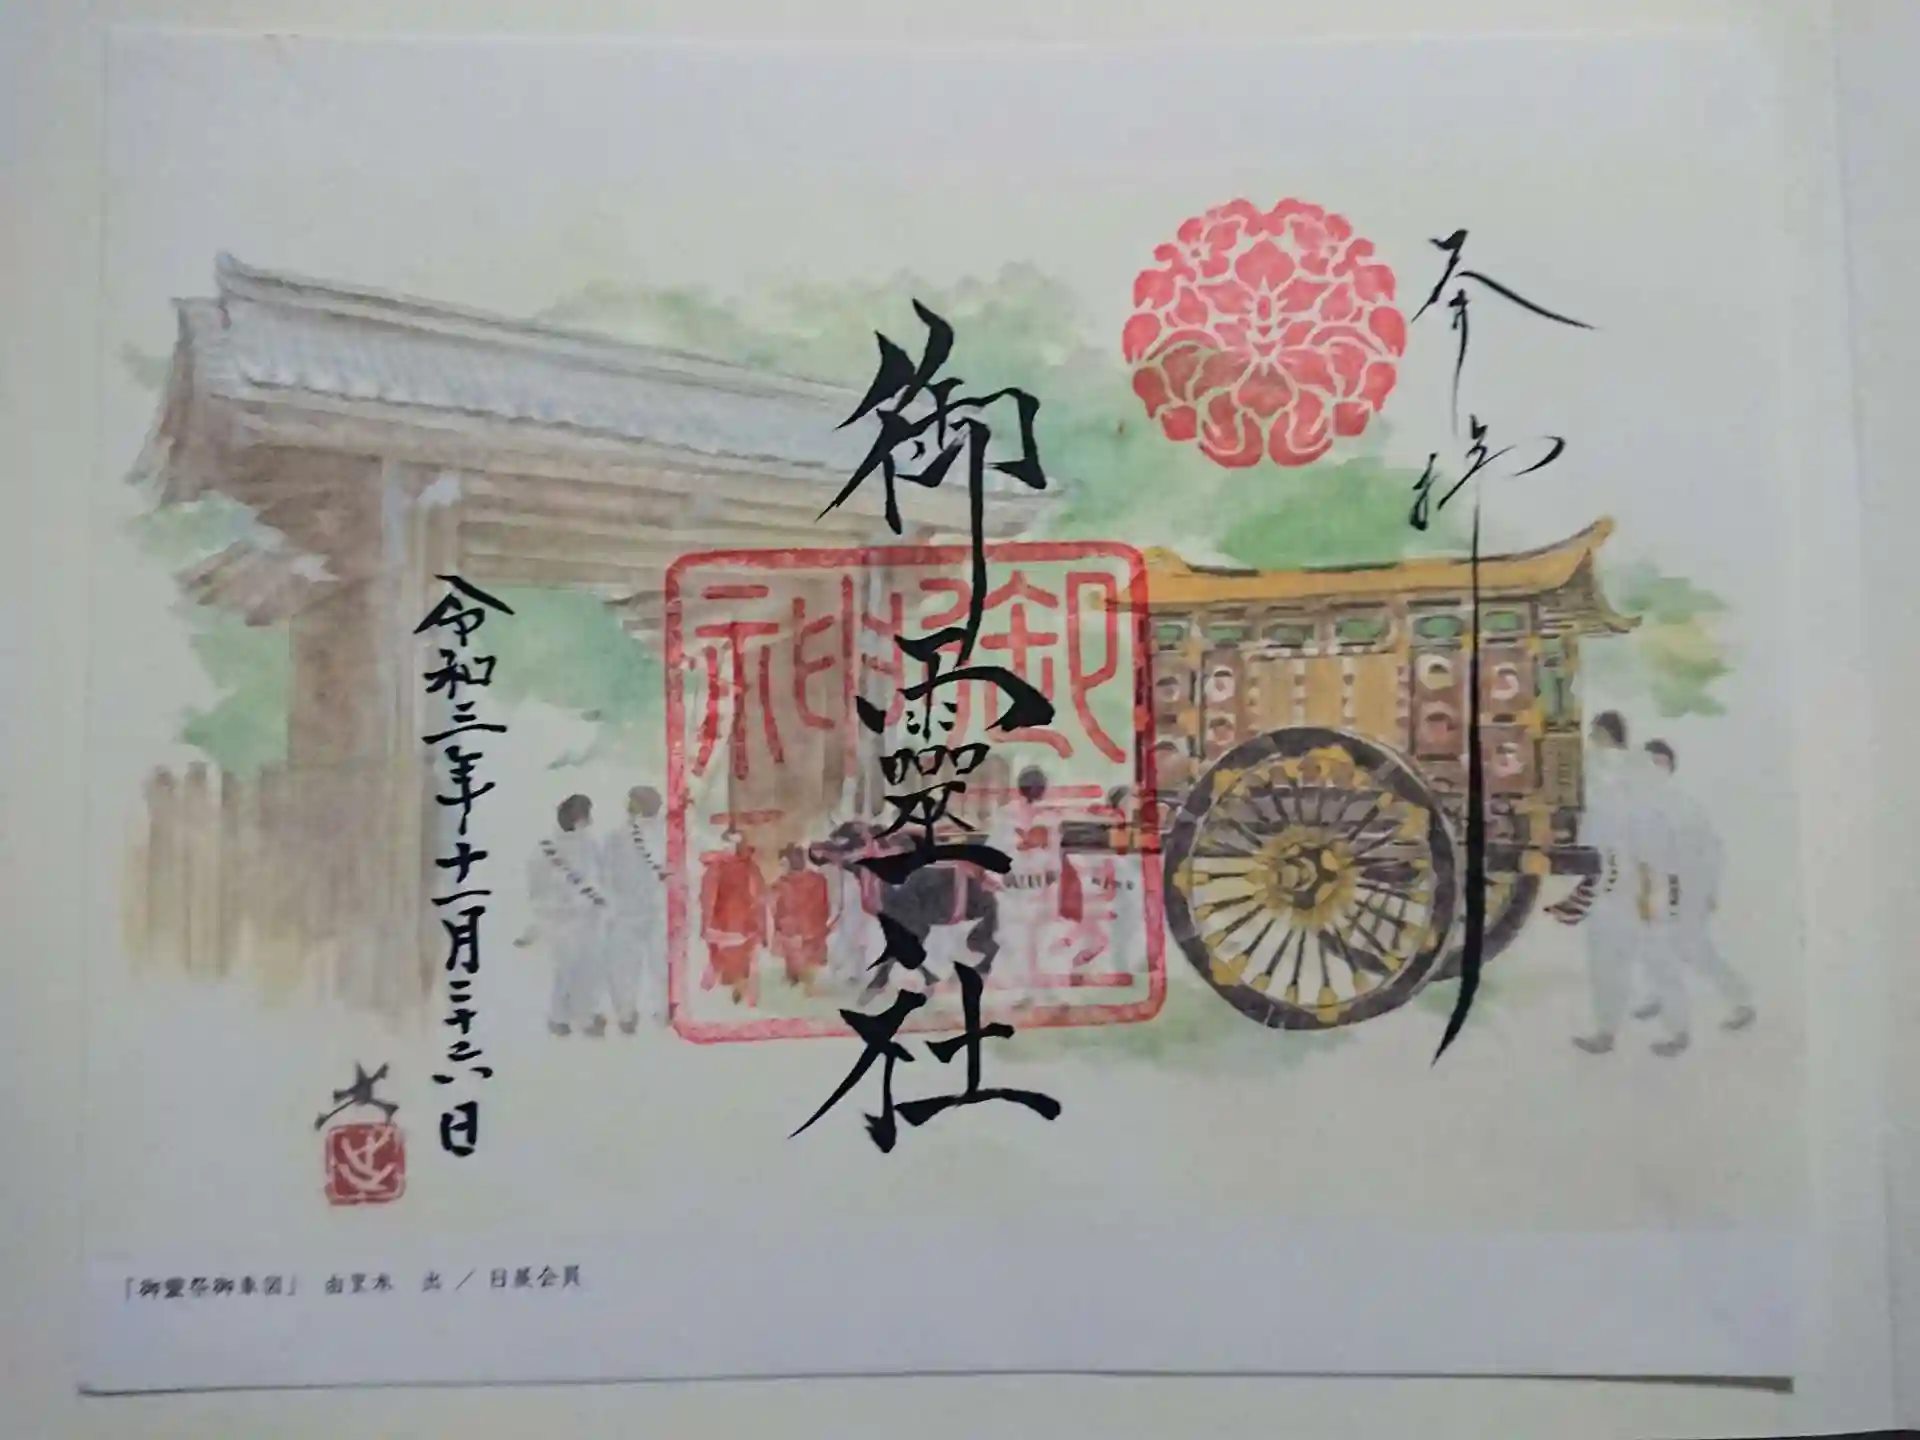 奉拝
御靈神社
令和三年十一月二十六日
「御霊祭御車図」 由里本 出 / 日展会員